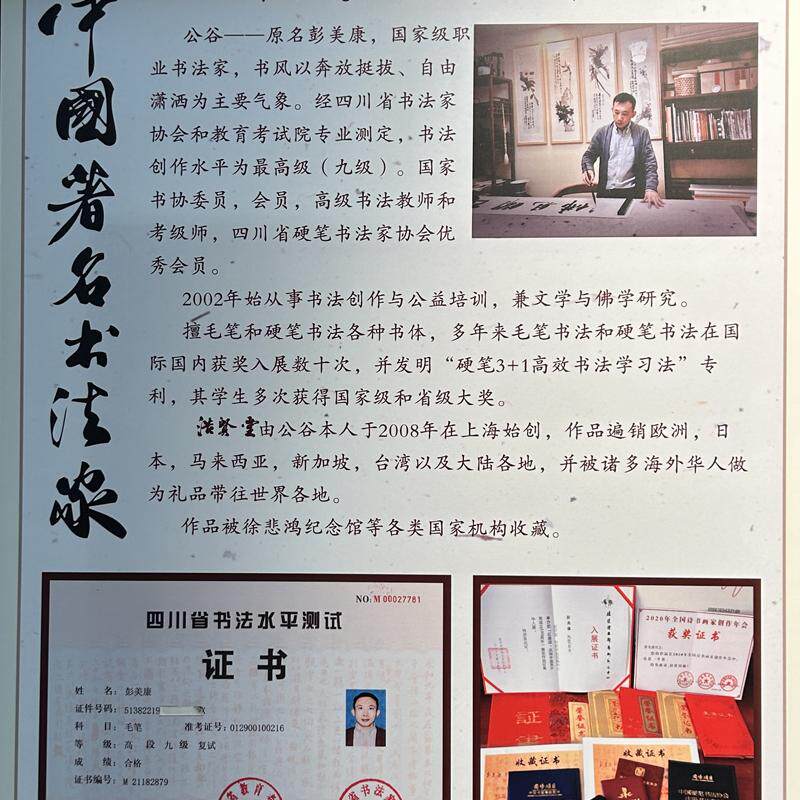 中國著名书法家
公谷——原名彭美康，国家级职
业书法家，书风以奔放挺拔、自由
潇洒为主要气象。经四川省书法家
协会和教育考试院专业测定，书法
创作水平为最高级（九级）。国家
书协委员，会员，高级书法教师和
考级师，四川省硬笔书法家协会优
秀会员。
2002年始从事书法创作与公益培训，兼文学与佛学研究。
擅毛笔和硬笔书法各种书体，多年来毛笔书法和硬笔书法在国
际国内获奖入展数十次，并发明“硬笔3+1高效书法学习法”专
利，其学生多次获得国家级和省级大奖。
由公谷本人于2008年在上海始创，作品遍销欧洲，日
本，马来西亚，新加坡，台湾以及大陆各地，并被诸多海外华人做
为礼品带往世界各地。
作品被徐悲鸿纪念馆等各类国家机构收藏。
NO:M 00027761
四川省书法水平测试
证书
姓 名：彭美康
证件号码：51382219 X
科 目：毛笔 准考证号：012900100216
等 级：高 段 九 级 复试
成 绩：合格
证书编号：M 21182879
入展证书
2020年全国诗书画家创作年会
获奖证书
荣誉证书
收藏证书
收藏证书